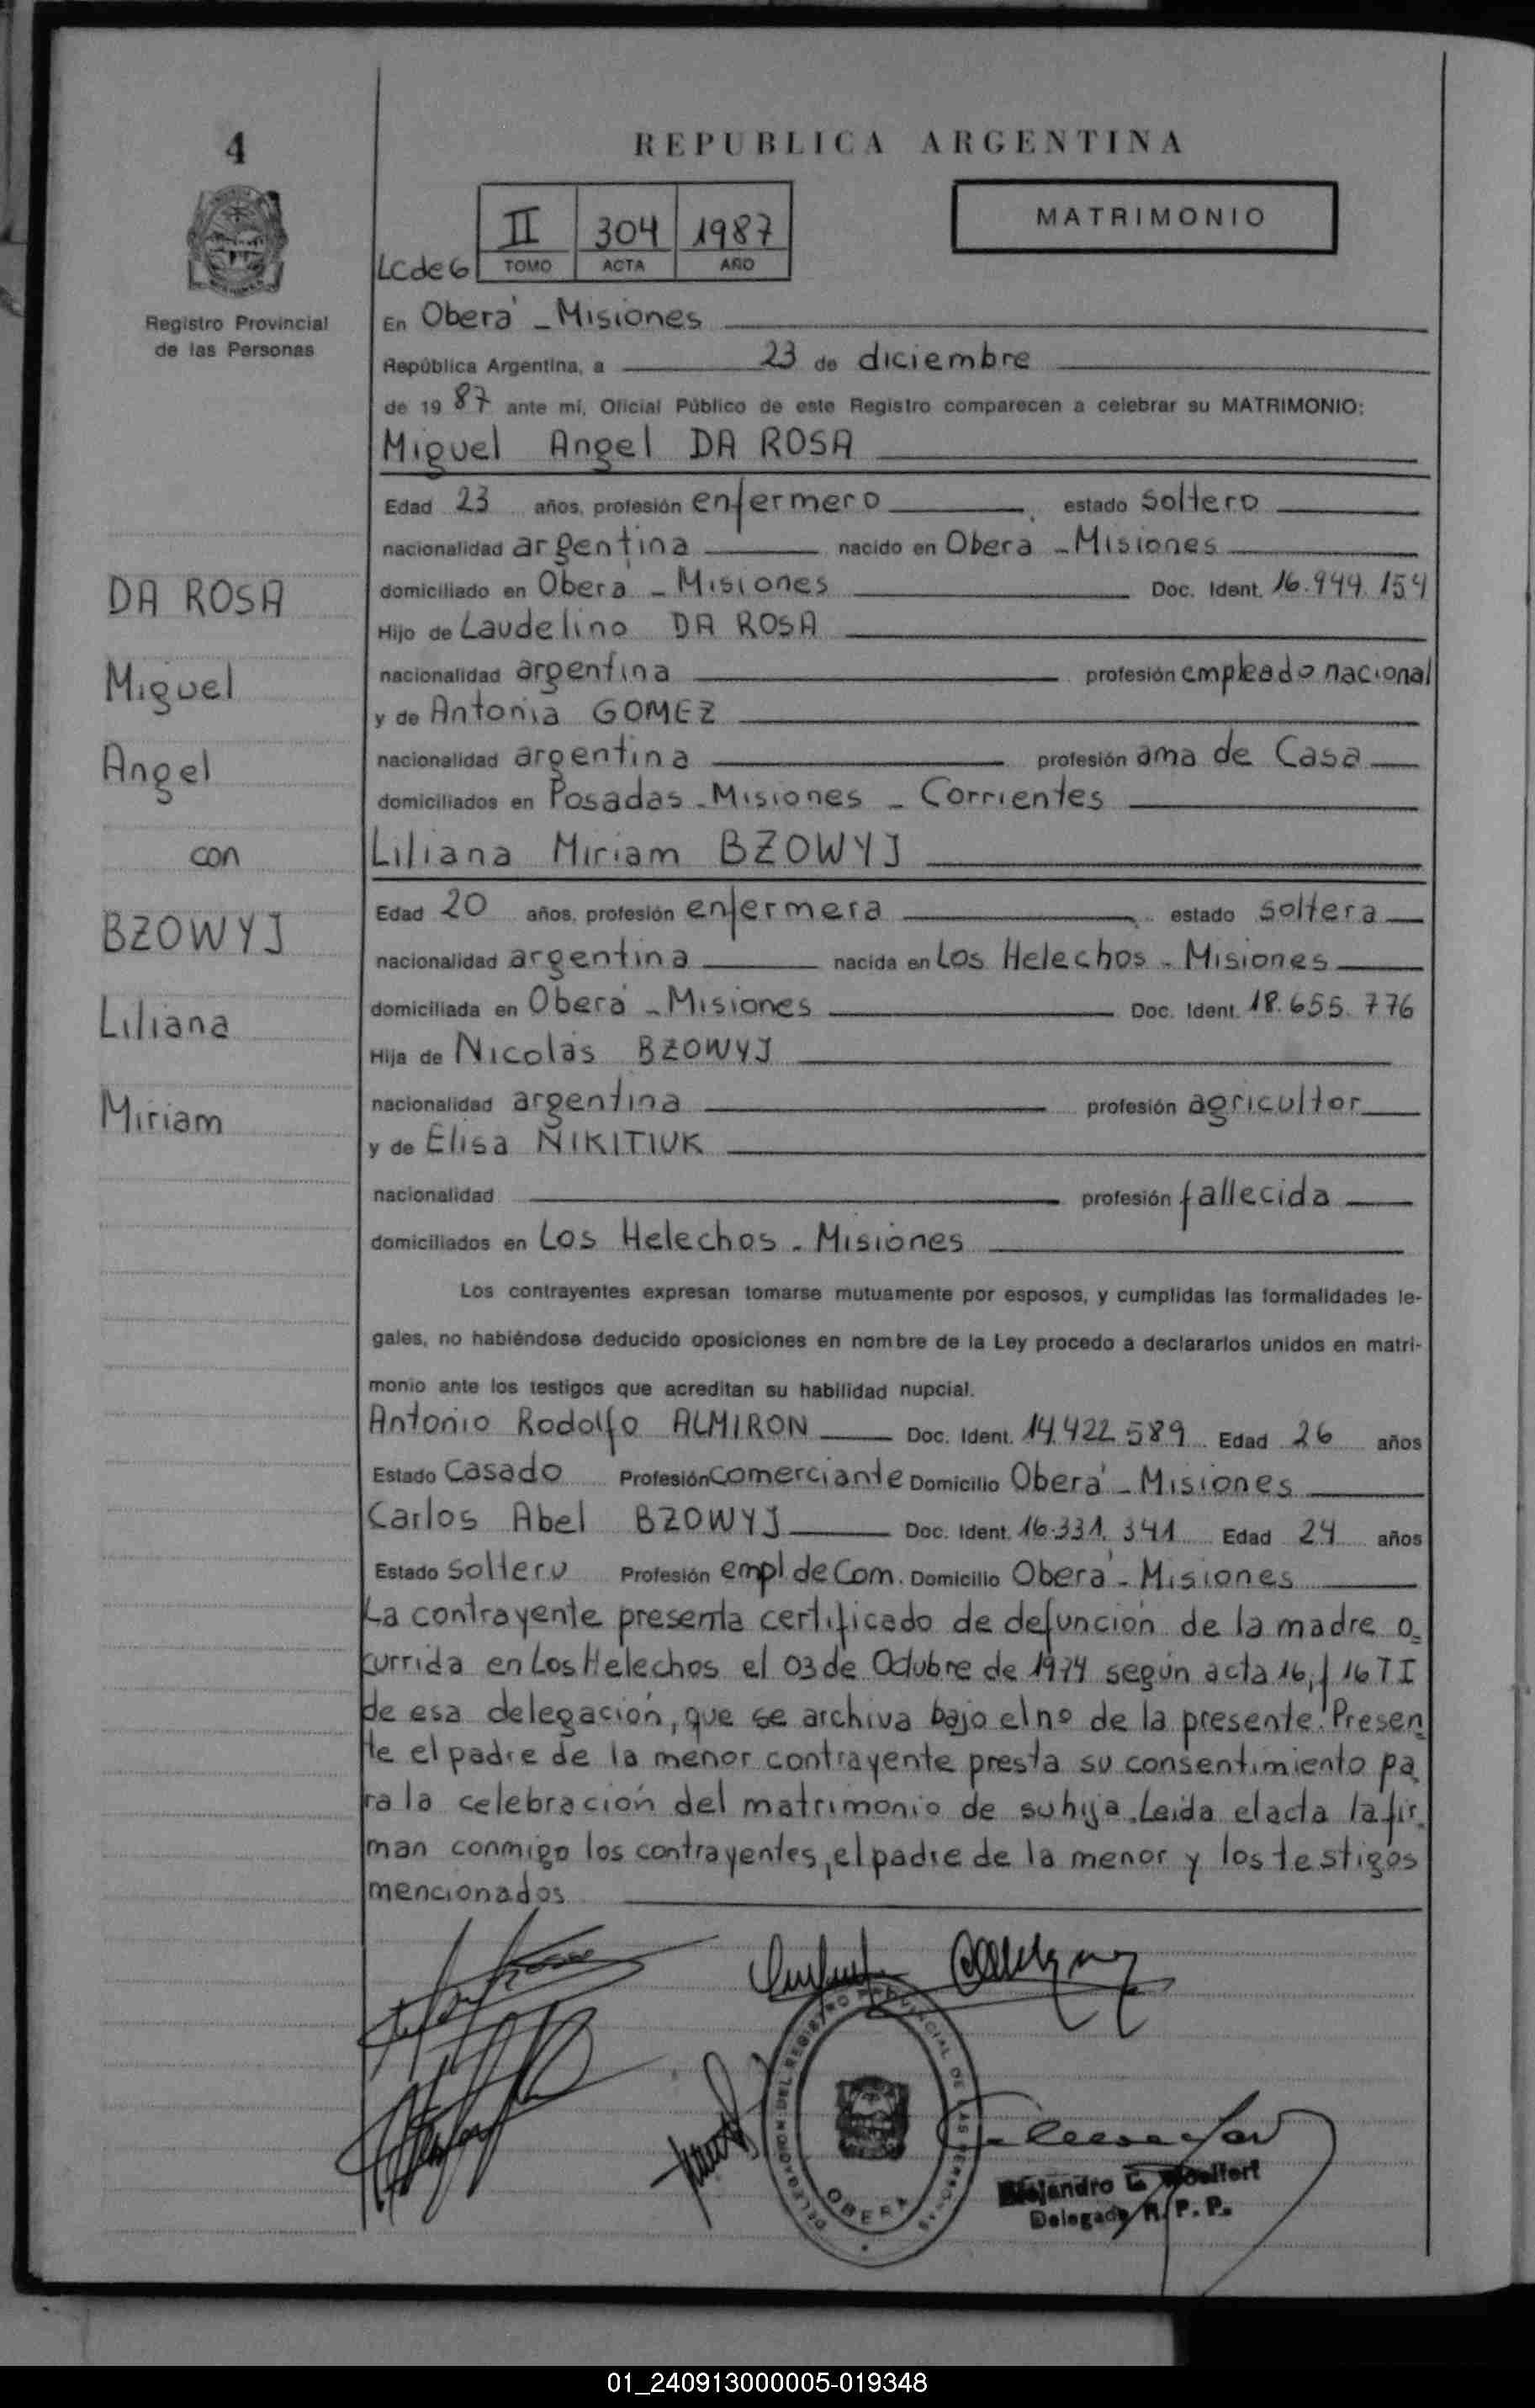 4
REPUBLICA ARGENTINA
MATRIMONIO
II 304 1987
LCde6 TOMO ACTA AÑO
Registro Provincial
de las Personas
En Oberá - Misiones
República Argentina, a 23 de diciembre
de 19 87 ante mí, Oficial Público de este Registro comparecen a celebrar su MATRIMONIO:
Miguel Angel DA ROSA
Edad 23 años, profesión enfermero estado soltero
nacionalidad argentina nacido en Oberá - Misiones
domiciliado en Oberá - Misiones Doc. Ident. 16.944.154
DA ROSA
Hijo de Laudelino DA ROSA
nacionalidad argentina profesión empleado nacional
Miguel
y de Antonia GOMEZ
Angel
nacionalidad argentina profesión ama de Casa
domiciliados en Posadas - Misiones - Corrientes
con
Liliana Miriam BZOWYJ
Edad 20 años, profesión enfermera estado soltera
BZOWYJ
nacionalidad argentina nacida en Los Helechos - Misiones
domiciliada en Oberá - Misiones Doc. Ident. 18.655.776
Liliana
Hija de Nicolás BZOWYJ
nacionalidad argentina profesión agricultor
Miriam
y de Elisa NIKITIUK
nacionalidad profesión fallecida
domiciliados en Los Helechos - Misiones
Los contrayentes expresan tomarse mutuamente por esposos, y cumplidas las formalidades le-
gales, no habiéndose deducido oposiciones en nombre de la Ley procedo a declararlos unidos en matri-
monio ante los testigos que acreditan su habilidad nupcial.
Antonio Rodolfo ALMIRON Doc. Ident. 14.422.589 Edad 26 años
Estado Casado Profesión Comerciante Domicilio Oberá - Misiones
Carlos Abel BZOWYJ Doc. Ident. 16.331.341 Edad 24 años
Estado soltero Profesión empl de Com. Domicilio Oberá - Misiones
La contrayente presenta certificado de defunción de la madre o=
currida en Los Helechos el 03 de Octubre de 1974 según acta 16, f 16 T I
de esa delegación, que se archiva bajo el nº de la presente. Presen
te el padre de la menor contrayente presta su consentimiento pa
ra la celebración del matrimonio de su hija. Leida el acta la fir
man conmigo los contrayentes, el padre de la menor y los testigos
mencionados
DELEGACION DEL REGISTRO PROVINCIAL DE LAS PERSONAS
OBERA
Alejandro
Delegado R. P. P.
01_240913000005-019348